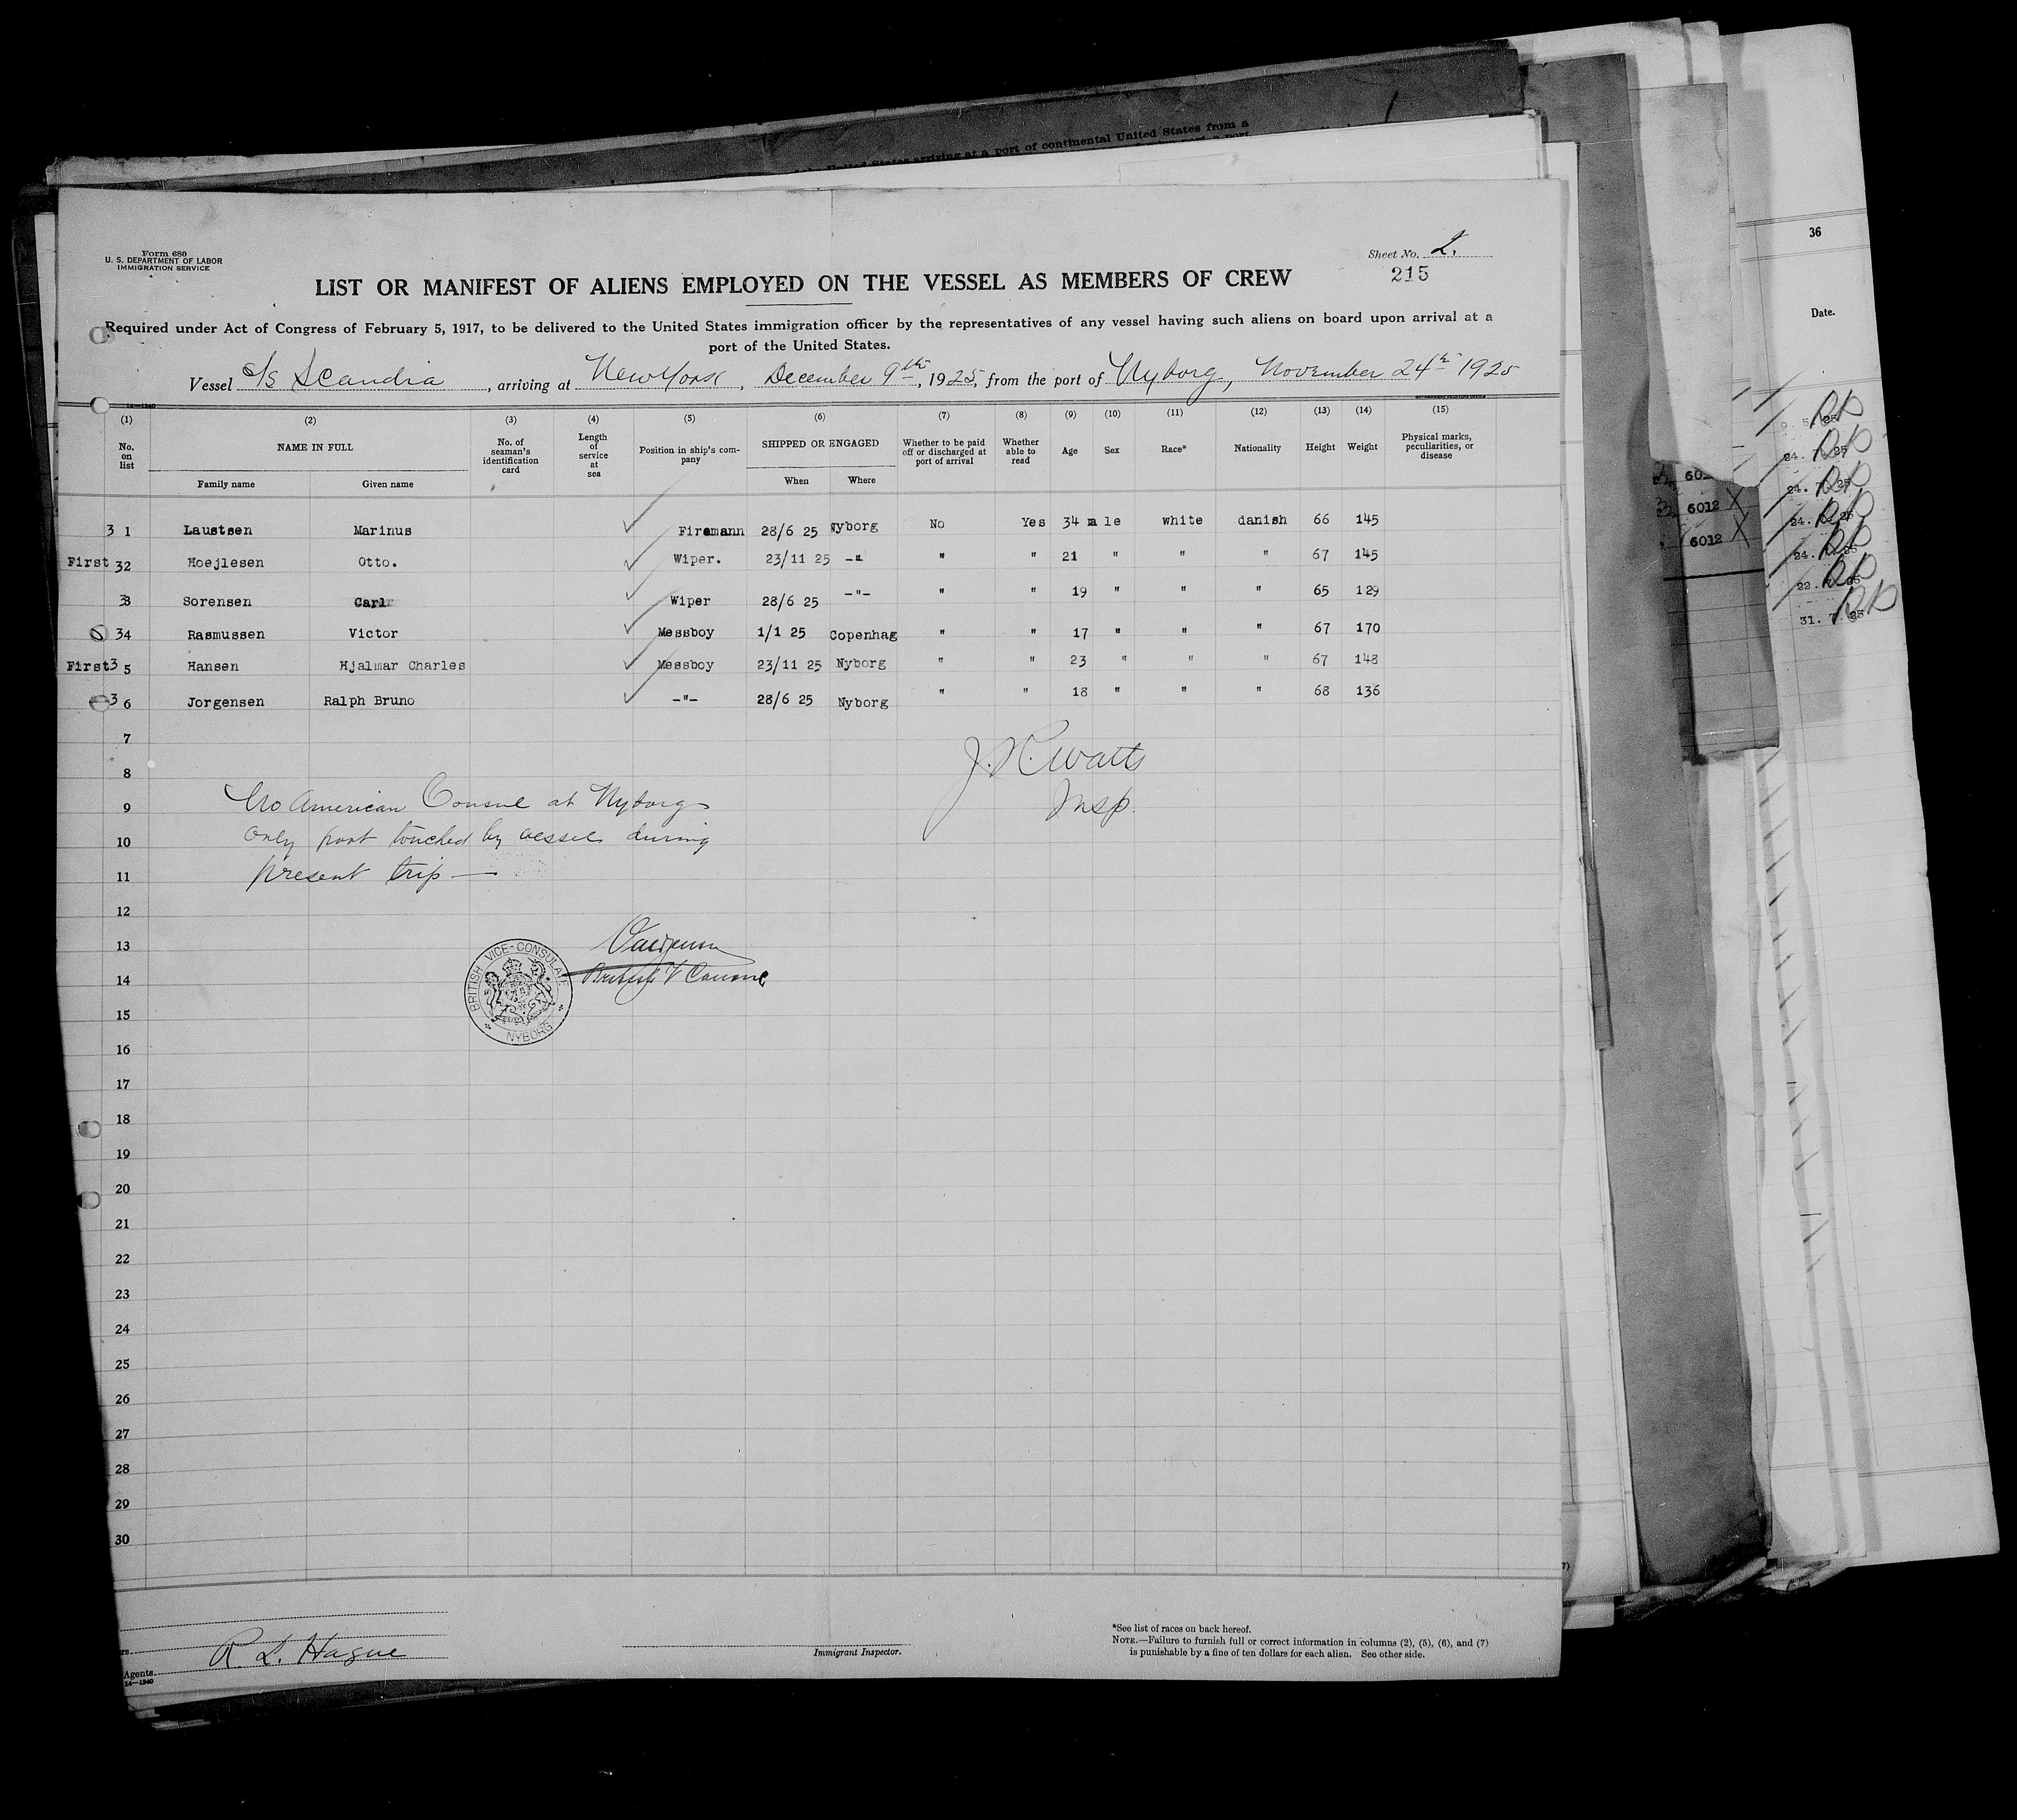 United States arriving at a port of continental United States from a
Form 680
U. S. DEPARTMENT OF LABOR
IMMIGRATION SERVICE
Sheet No. 2.
215
LIST OR MANIFEST OF ALIENS EMPLOYED ON THE VESSEL AS MEMBERS OF CREW
Required under Act of Congress of February 5, 1917, to be delivered to the United States immigration officer by the representatives of any vessel having such aliens on board upon arrival at a
port of the United States.
Vessel S/S Scandia, arriving at New York, December 9th, 1925, from the port of Nyborg, November 24th 1925
14—1240
(1) (2) (3) (4) (5) (6) (7) (8) (9) (10) (11) (12) (13) (14) (15)
No. on list NAME IN FULL No. of seaman's identification card Length of service at sea Position in ship's company SHIPPED OR ENGAGED Whether to be paid off or discharged at port of arrival Whether able to read Age Sex Race* Nationality Height Weight Physical marks, peculiarities, or disease
Family name Given name When Where
3 1 Laustsen Marinus Firemann 28/6 25 Nyborg No Yes 34 male white danish 66 145
First 32 Hoejlesen Otto. Wiper. 23/11 25 -"- " " 21 " " " 67 145
33 Sorensen Carl Wiper 28/6 25 -"- " " 19 " " " 65 129
34 Rasmussen Victor Messboy 1/1 25 Copenhag " " 17 " " " 67 170
First 3 5 Hansen Hjalmar Charles Messboy 23/11 25 Nyborg " " 23 " " " 67 148
3 6 Jorgensen Ralph Bruno -"- 28/6 25 Nyborg " " 18 " " " 68 136
7
8
9
10
11
12
13
14
15
16
17
18
19
20
21
22
23
24
25
26
27
28
29
30
J. R. Watts
Insp.
No American Consul at Nyborg
only port touched by vessel during
present trip —
British V Consul
BRITISH VICE-CONSULATE
NYBORG
R. L. Hague
Agents
14—1240
Immigrant Inspector.
*See list of races on back hereof.
NOTE.—Failure to furnish full or correct information in columns (2), (5), (6), and (7)
is punishable by a fine of ten dollars for each alien. See other side.
36
Date.
6012
6012
31. 7. 25